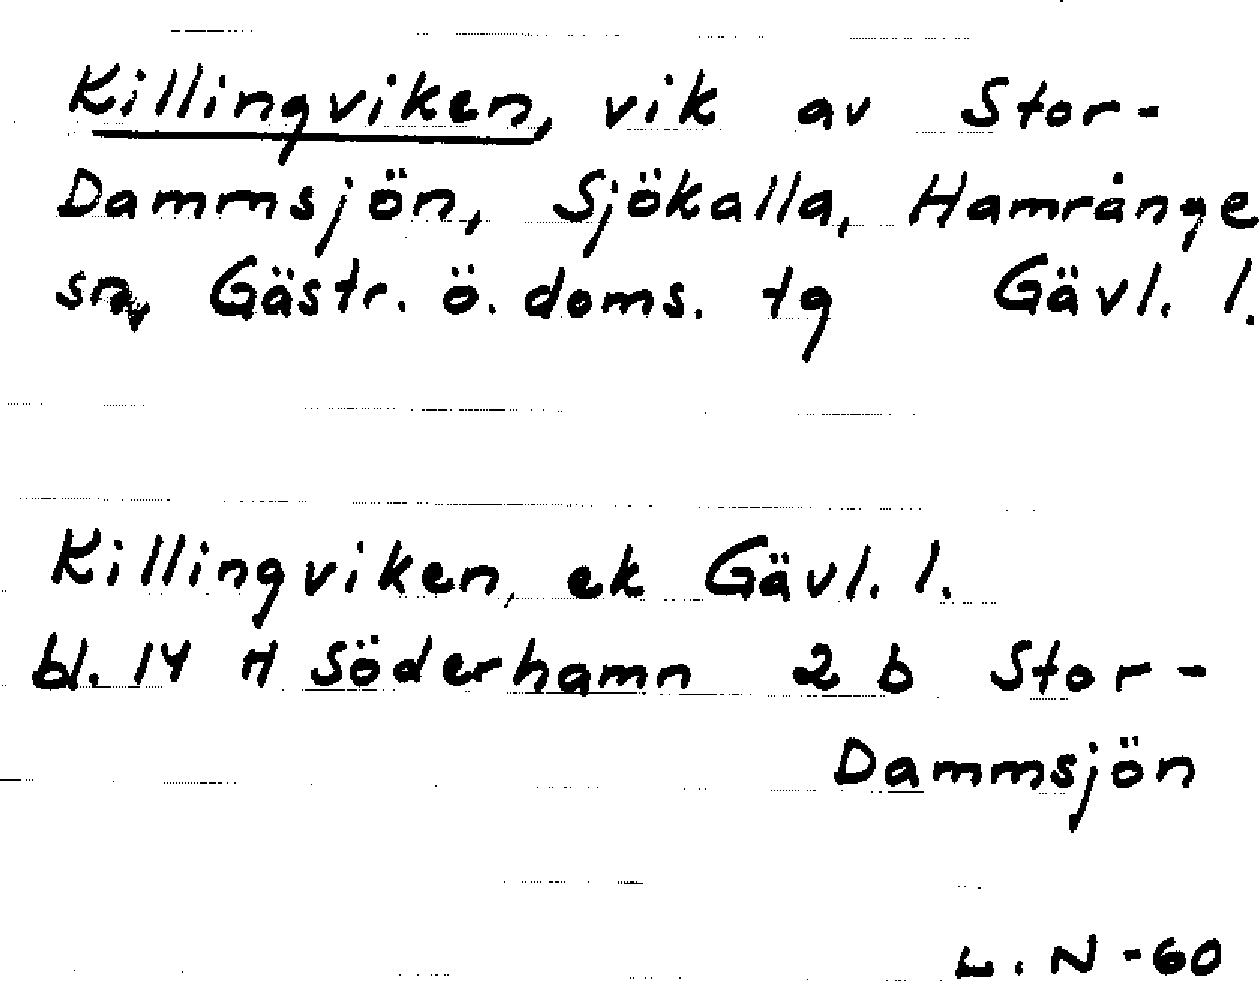 Killingviken, vik av Stor-
Dammsjön, Sjökalla, Hamrånge
sn, Gästr. ö. doms. tg Gävl. l.
Killingviken, ek Gävl. l.
bl. 14 H Söderhamn 2 b Stor-
Dammsjön
L. N -60